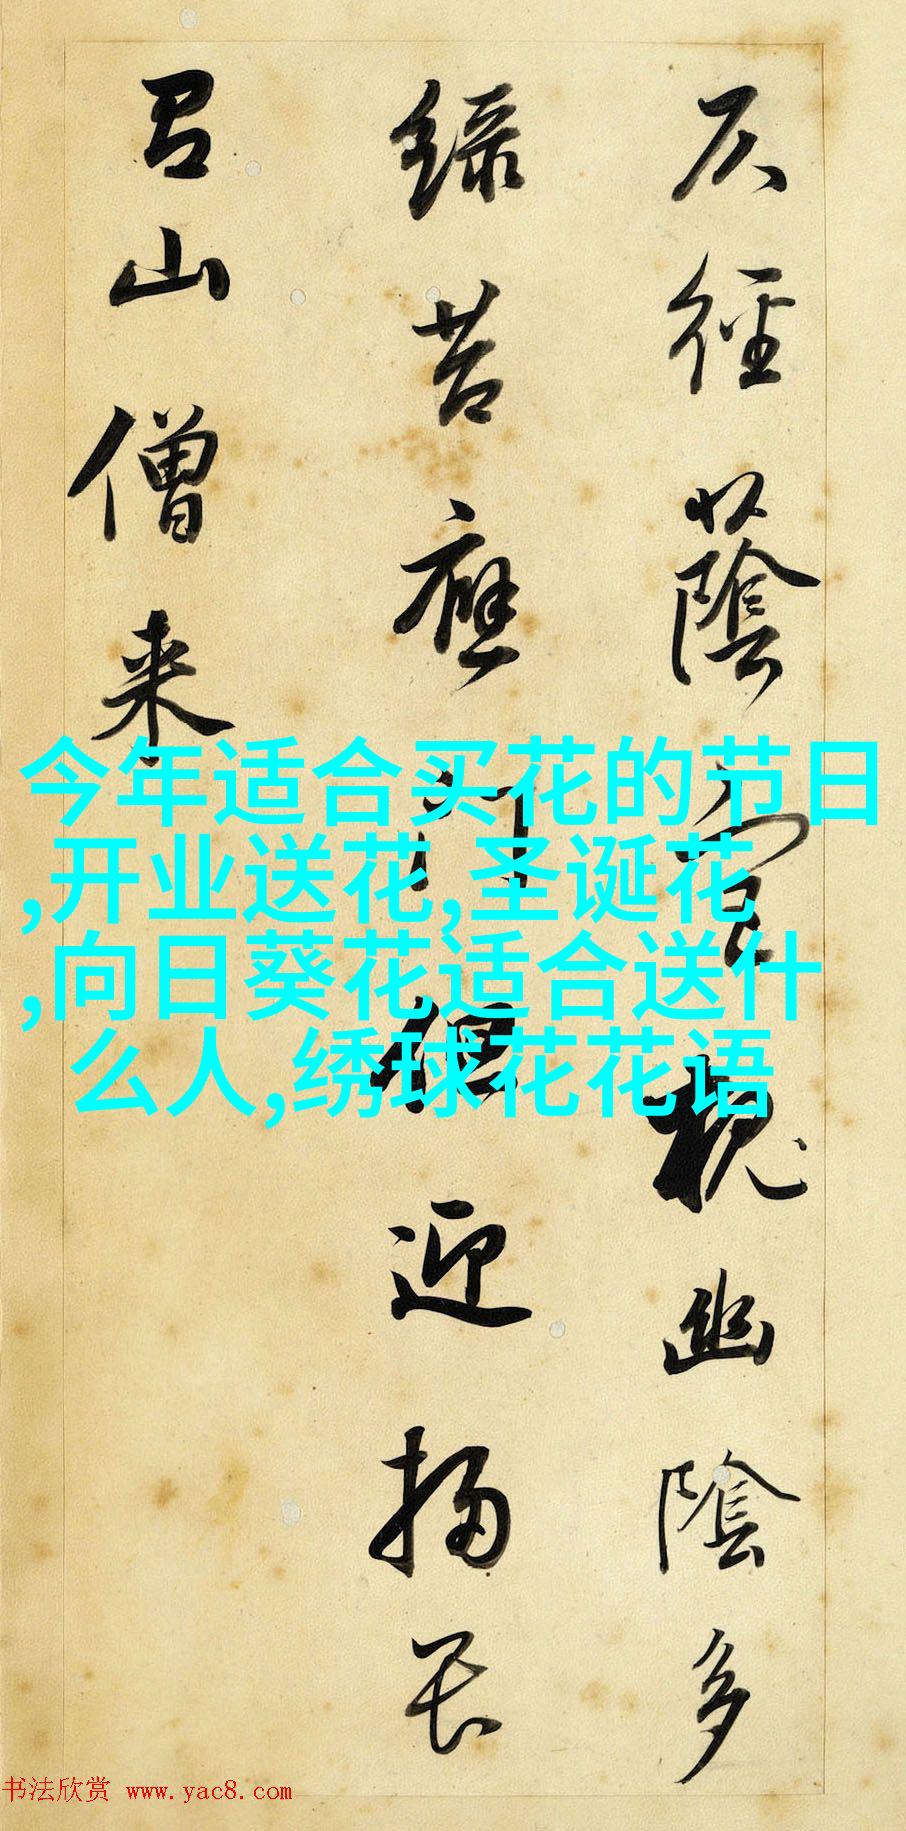 仄徑蔭宮槐幽陰多
綠苔應門但迎掃
山僧来
今年适合买花的节日
,开业送花,圣诞花
,向日葵花适合送什
么人,绣球花花语
书法欣赏 www.yac8.com